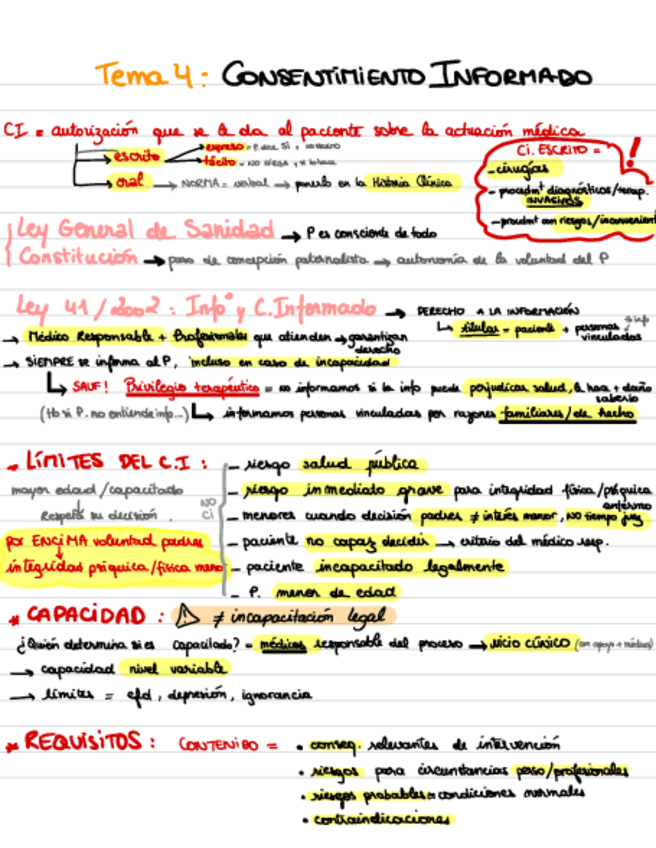 Tema 4: CONSENTIMIENTO INFORMADO
CI = autorización que se le da al paciente sobre la actuación médica
escrito
expreso = P. dice SI o
tácito = NO NIEGA
oral → NORMA = verbal → ponerlo en la Historia Clínica
CI. ESCRITO = !
- cirugías
- procedmt diagnósticos/terap. INVASIVOS
- procedmt con riesgos/inconvenient
Ley General de Sanidad → P es consciente de todo
Constitución → paso de concepción paternalista → autonomía de la voluntad del P
Ley 41/2002: Infº y C.Informado → DERECHO A LA INFORMACIÓN
↳ titular = paciente + personas vinculadas
→ Médico Responsable + Profesionales que atienden → garantizan derecho
→ SIEMPRE se informa al P, incluso en caso de incapacidad
↳ SALVO! Privilegio terapéutico = no informamos si la info puede perjudicar salud, le hace + daño saberlo
(tb si P. no entiende info...) ↳ informamos personas vinculadas por razones familiares/de hecho
* LÍMITES DEL C.I:
- riesgo salud pública
mayor edad/capacitado
- riesgo inmediato grave para integridad física/psíquica enfermo
Respeta su decisión.
NO CI
- menores cuando decisión padres ≠ interés menor, NO tiempo juez
por ENCIMA voluntad padres
- paciente no capaz decidir → criterio del médico resp.
integridad psíquica/física menor
- paciente incapacitado legalmente
- P. menor de edad
* CAPACIDAD: ⚠ ≠ incapacitación legal
¿Quién determina si es capacitado? = médicos responsable del proceso → JUICIO CLÍNICO (con apoyo + médicos)
→ capacidad nivel variable
→ límites = efd, depresión, ignorancia
* REQUISITOS: CONTENIDO = • conseq. relevantes de intervención
• riesgos para circunstancias perso/profesionales
• riesgos probables = condiciones normales
• contraindicaciones